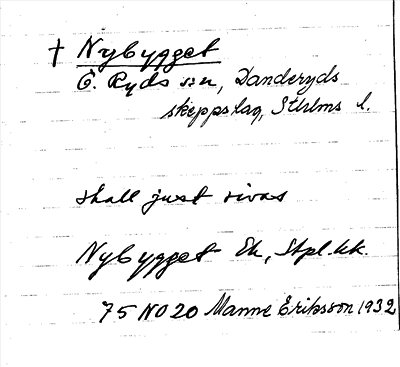 † Nybygget
Ö. Ryds sn, Danderyds
skeppslag, Sthlms l.
skall just rivas
Nybygget Ek, Stpl. kk.
75 NO 20 Manne Eriksson 1932